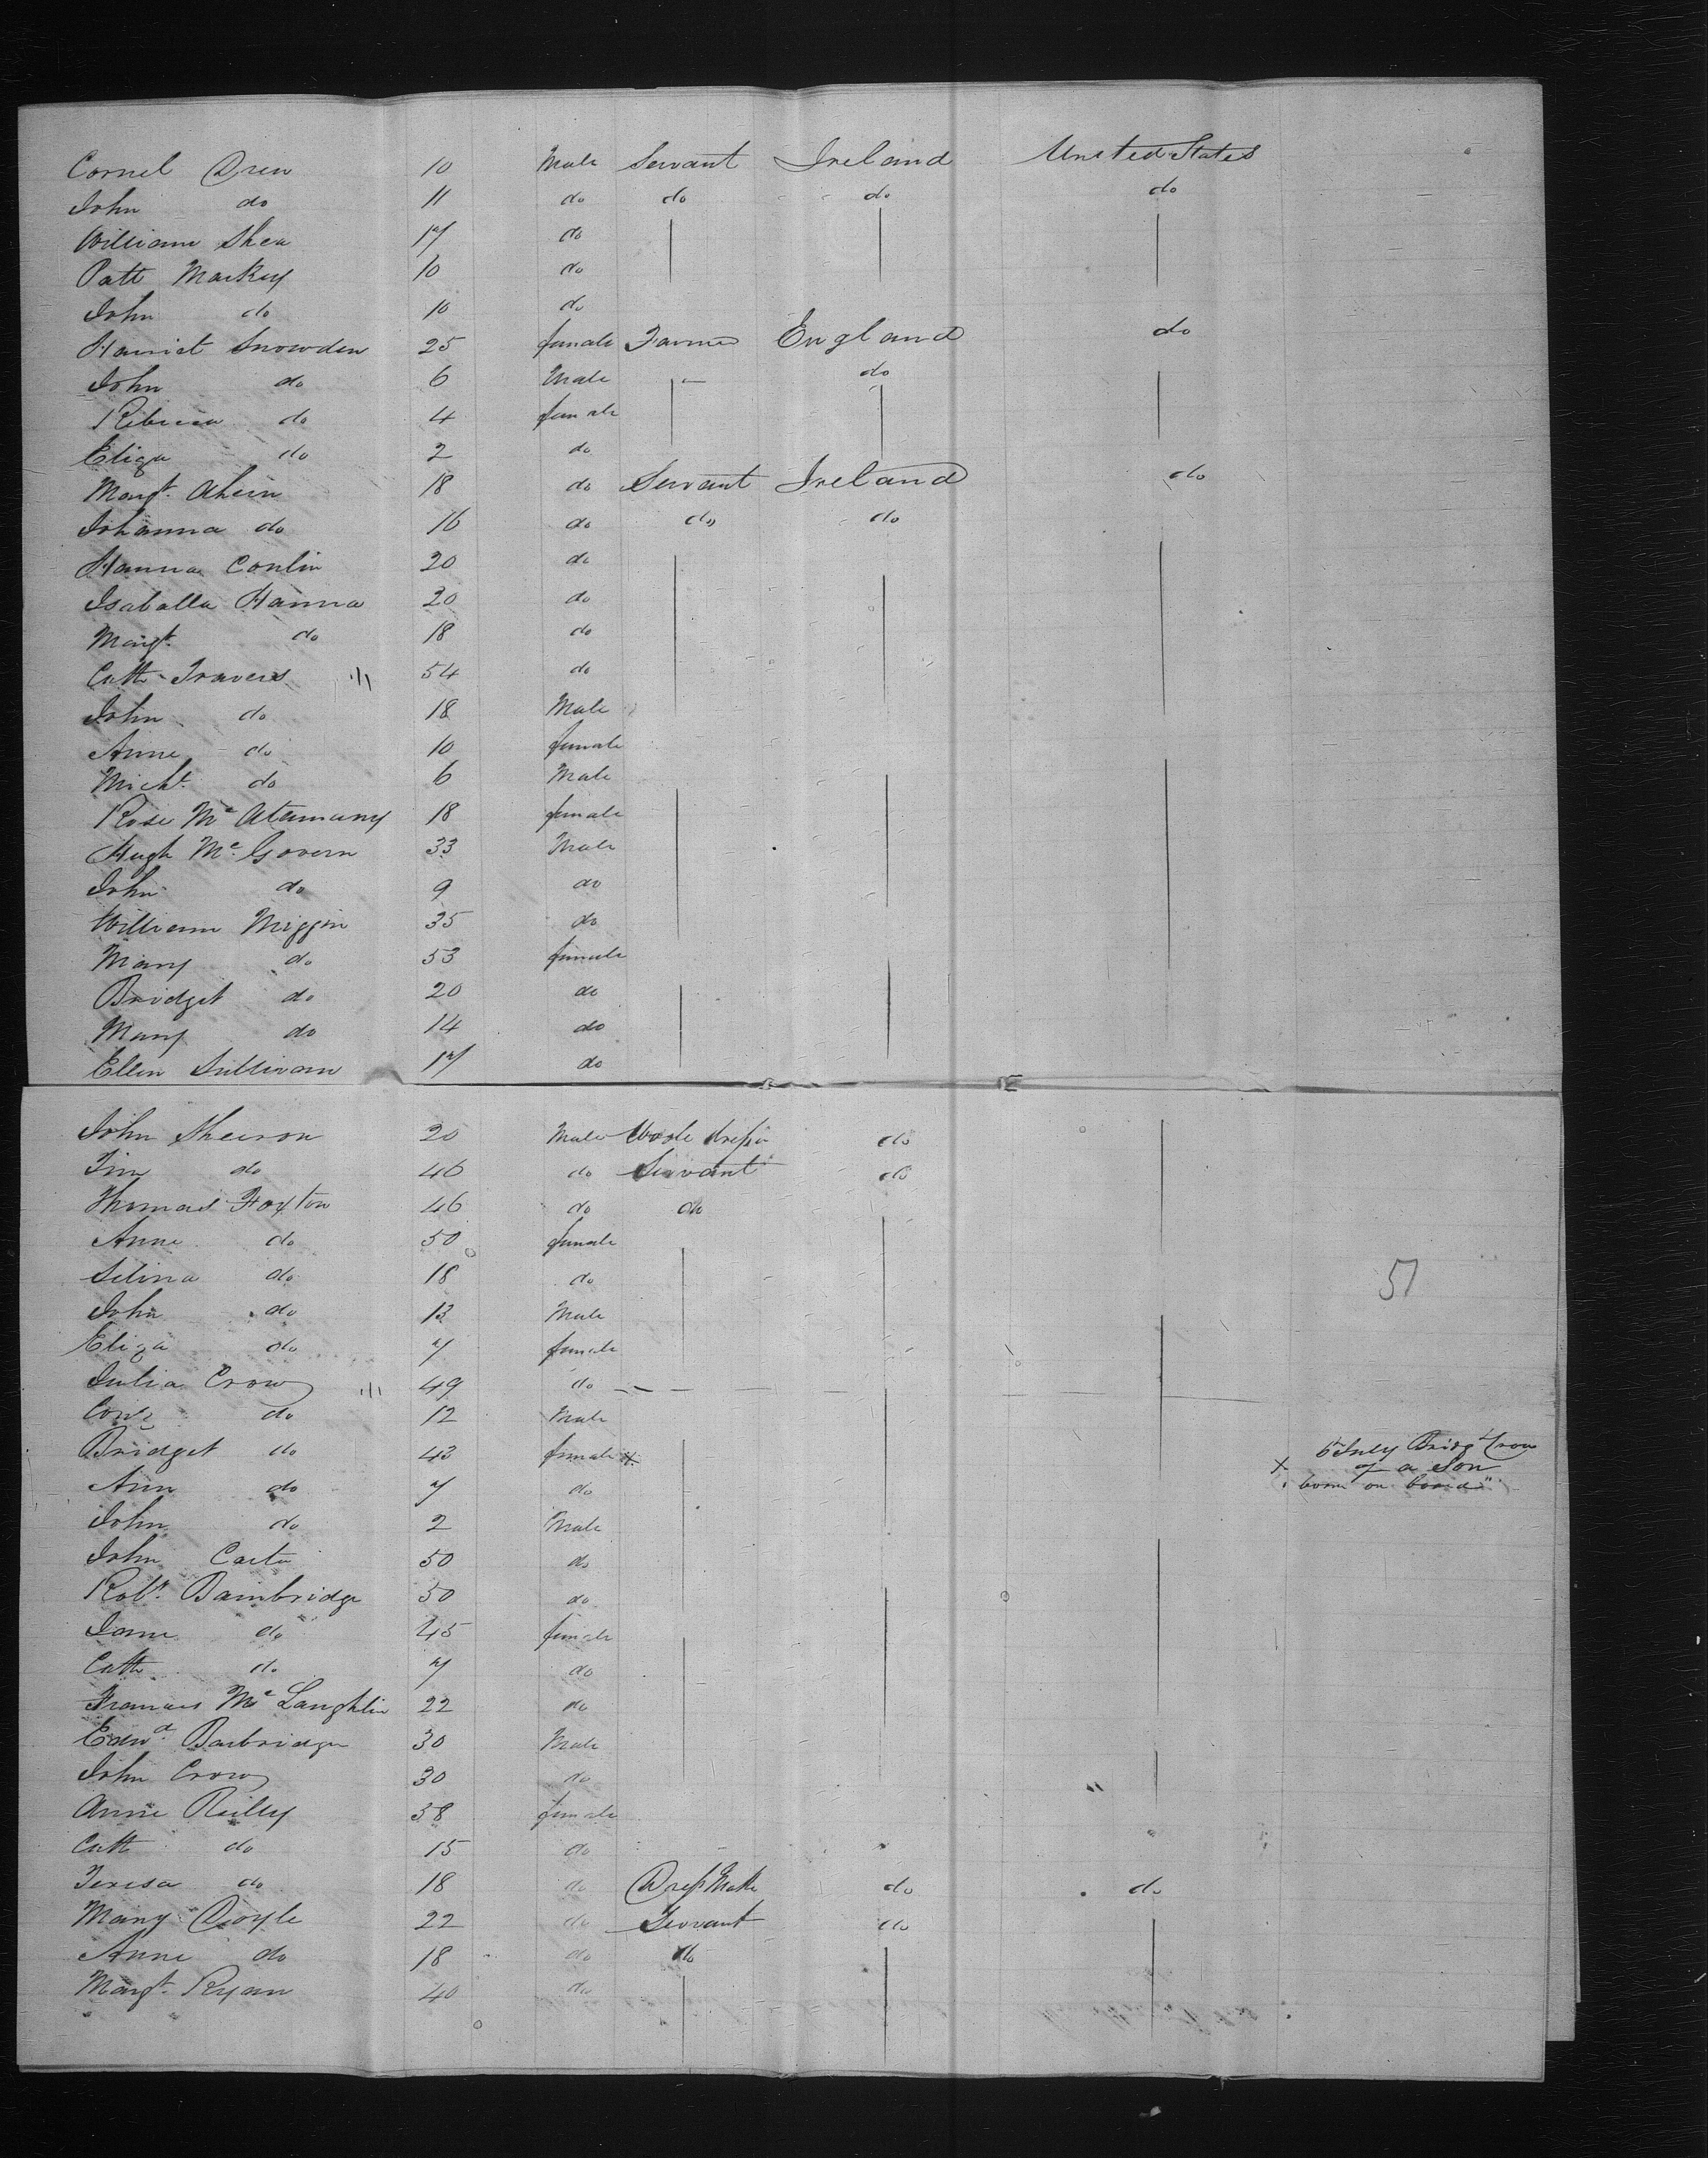 Cornel Drew 10 Male Servant Ireland United States
John do 11 do do do do
William Shea 17 do
Patt Markey 10 do
John do 10 do
Harriet Snowden 25 female Farmer England do
John do 6 Male do
Rebecca do 4 female
Eliza do 2 do
Margt. Ahern 18 do Servant Ireland do
Johanna do 16 do do do
Hanna Conlin 20 do
Isaballa Hanna 20 do
Margt. do 18 do
Cath Travers 54 do
John do 18 Male
Anne do 10 female
Michl. do 6 Male
Rose Mc 18 female
Hugh Mc Govern 33 Male
John do 9 do
William Miggin 35 do
Mary do 53 female
Bridget do 20 do
Mary do 14 do
Ellen Sullivan 17 do
John 20 Male do
Tim do 46 do Servant do
Thomas Foxton 46 do do
Anne do 50 female
Selina do 18 do
John do 13 Male
Eliza do 7 female
51
Julia Crow 49 do
do 12 Male
Bridget do 43 female x
6 July Bridgt Crow
x of a Son
born on board"
Ann do 7 do
John do 2 Male
John Carter 50 do
Robt. Bambridge 50 do
Jane do 45 female
Cath do 7 do
Frances Mc Laughlin 22 do
Edwd. Barbridge 30 Male
John Crow 30 do
Anne Reilly 38 female
Cath do 15 do
Teresa do 18 do Dress Mak do do
Mary Doyle 22 do Servant do
Anne do 18 do do
Margt. Ryan 40 do